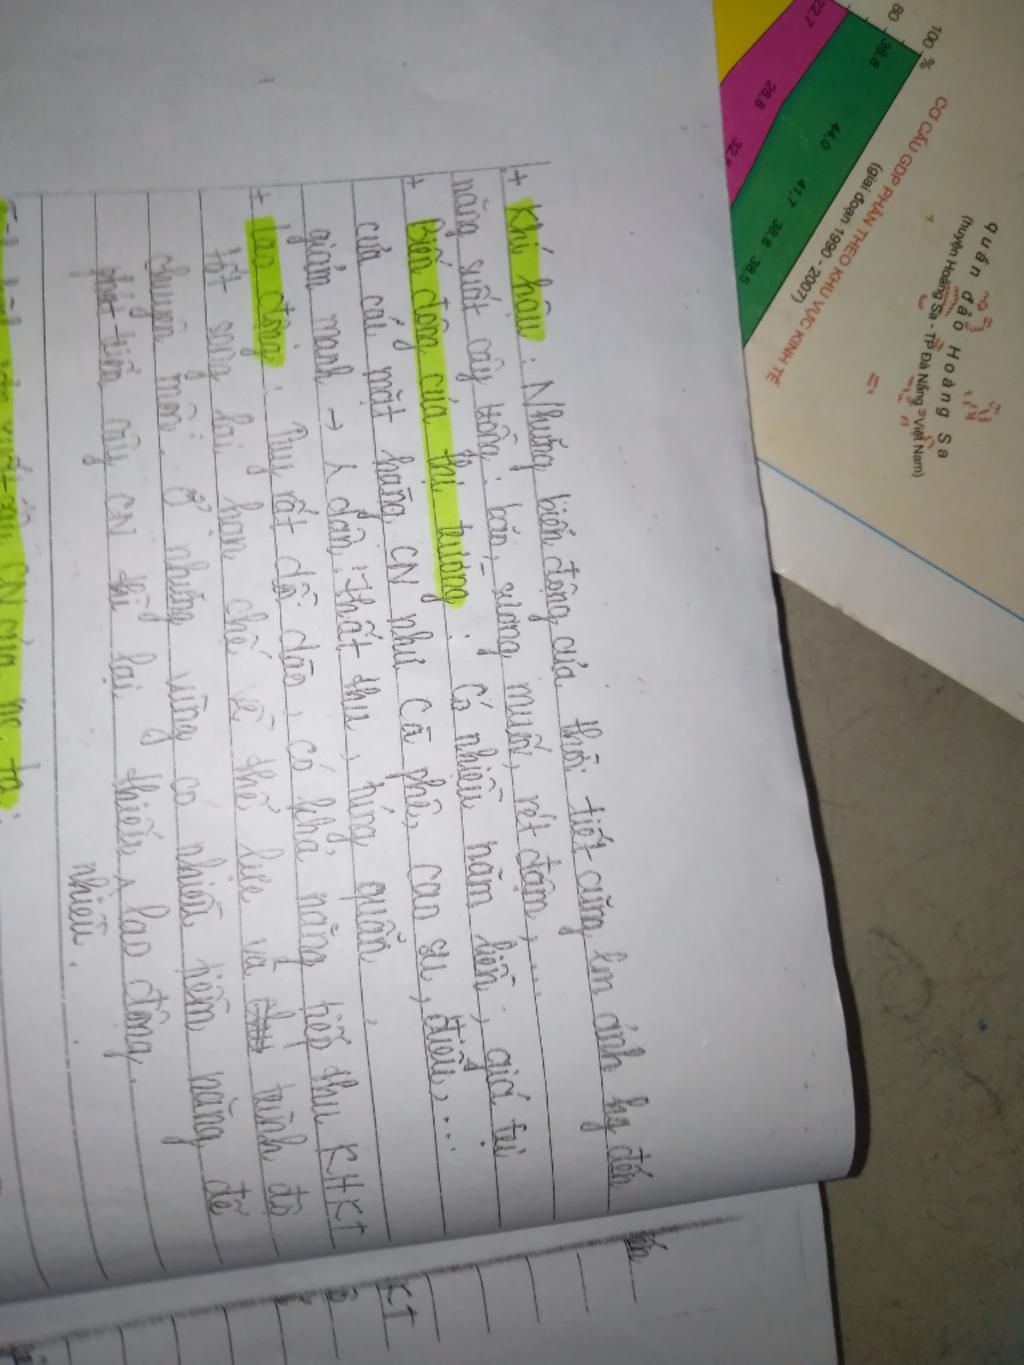 + Khí hậu : Những biến động của thời tiết cũng làm ảnh hg đến
năng suất cây trồng : bão, sương muối, rét đậm, ...
+ Biến động của thị trường : Có nhiều năm liền, giá trị
của các mặt hàng CN như cà phê, cao su, điều, ...
giảm mạnh → dân thất thu, túng quẫn.
+ Lao động : Tuy rất dồi dào, có khả năng tiếp thu KHKT
tốt song lại hạn chế về thể lực và trình độ
chuyên môn. Ở những vùng có nhiều tiềm năng để
triển cây CN thì lại thiếu lao động.
nhiều.
CN của nc ta
KT
quần đảo Hoàng Sa
(huyện Hoàng Sa - TP Đà Nẵng - Việt Nam)
CƠ CẤU GDP PHÂN THEO KHU VỰC KINH TẾ
(giai đoạn 1990 - 2007)
80
100 %
22.7
28,8
38,6
44,0
41,7
38,8
38,5